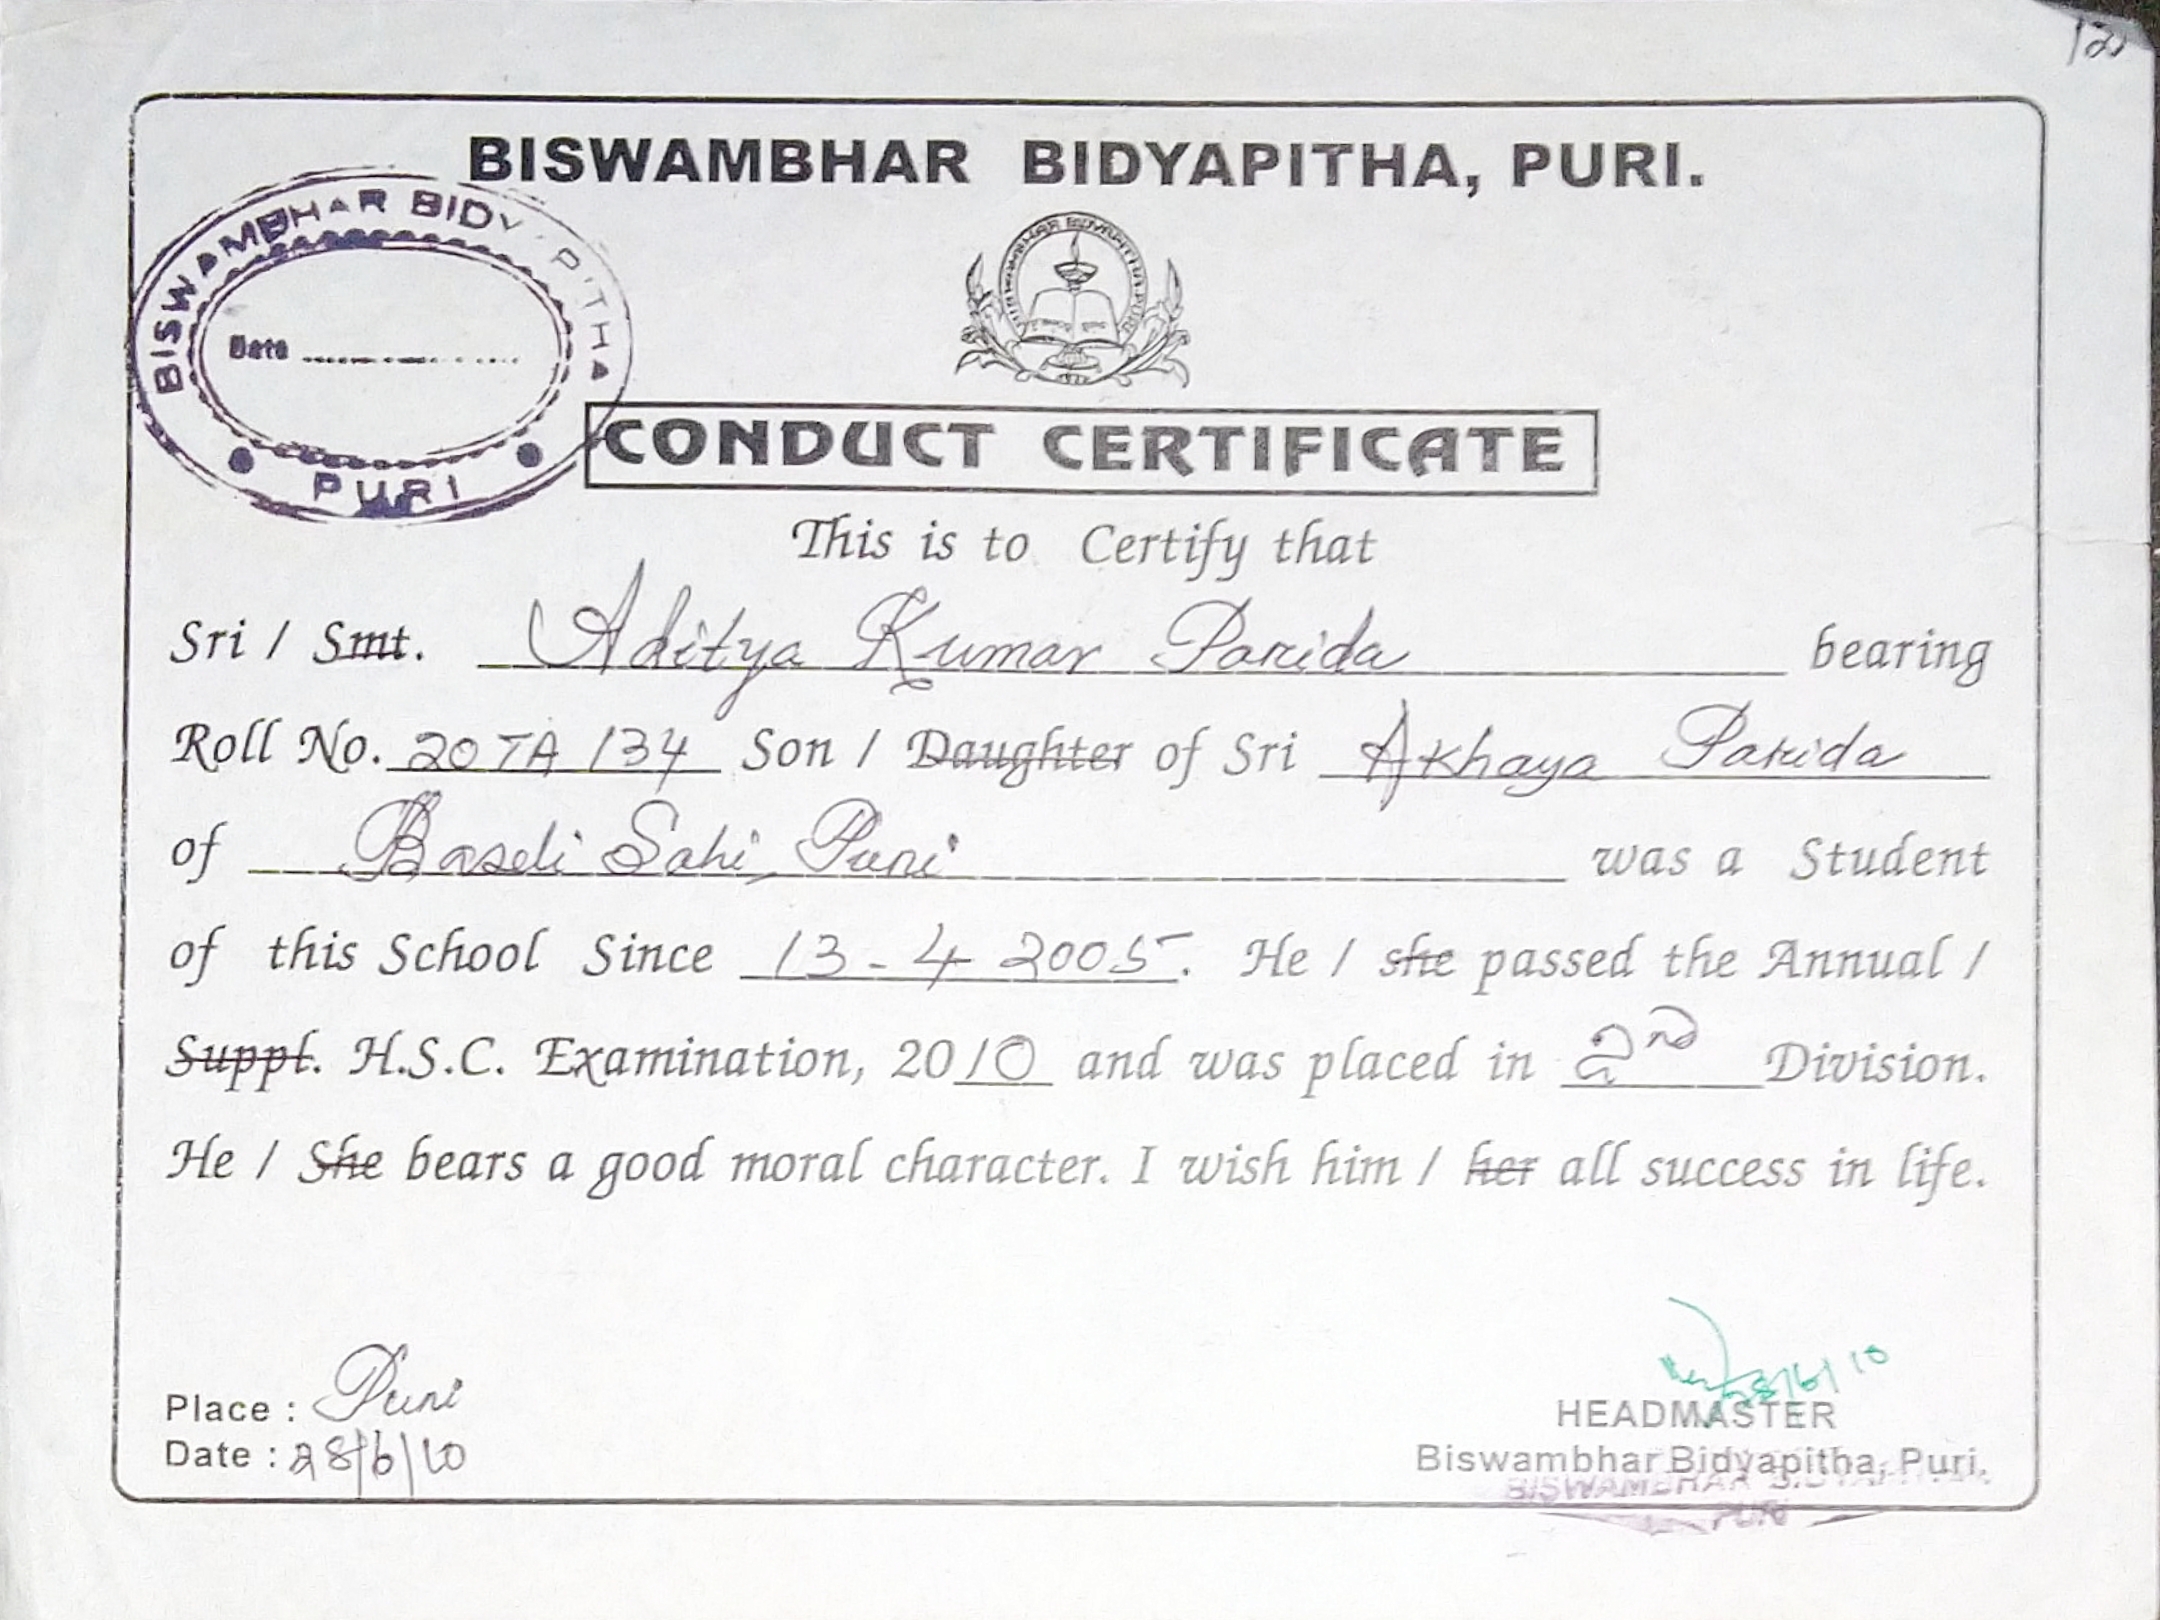 120
BISWAMBHAR BIDYAPITHA, PURI.
BISWAMBHAR BIDYAPITHA
Date ....................
PURI
CONDUCT CERTIFICATE
This is to Certify that
Sri / Smt. Aditya Kumar Parida bearing
Roll No. 20TA 134 Son / Daughter of Sri Akhaya Parida
of Baseli Sahi, Puri was a Student
of this School Since 13-4 2005. He / she passed the Annual /
Suppl. H.S.C. Examination, 2010 and was placed in 2nd Division.
He / She bears a good moral character. I wish him / her all success in life.
Place : Puri
Date : 28/6/10
28/6/10
HEADMASTER
Biswambhar Bidyapitha, Puri.
BISWAMBHAR BIDYAPITHA
PURI